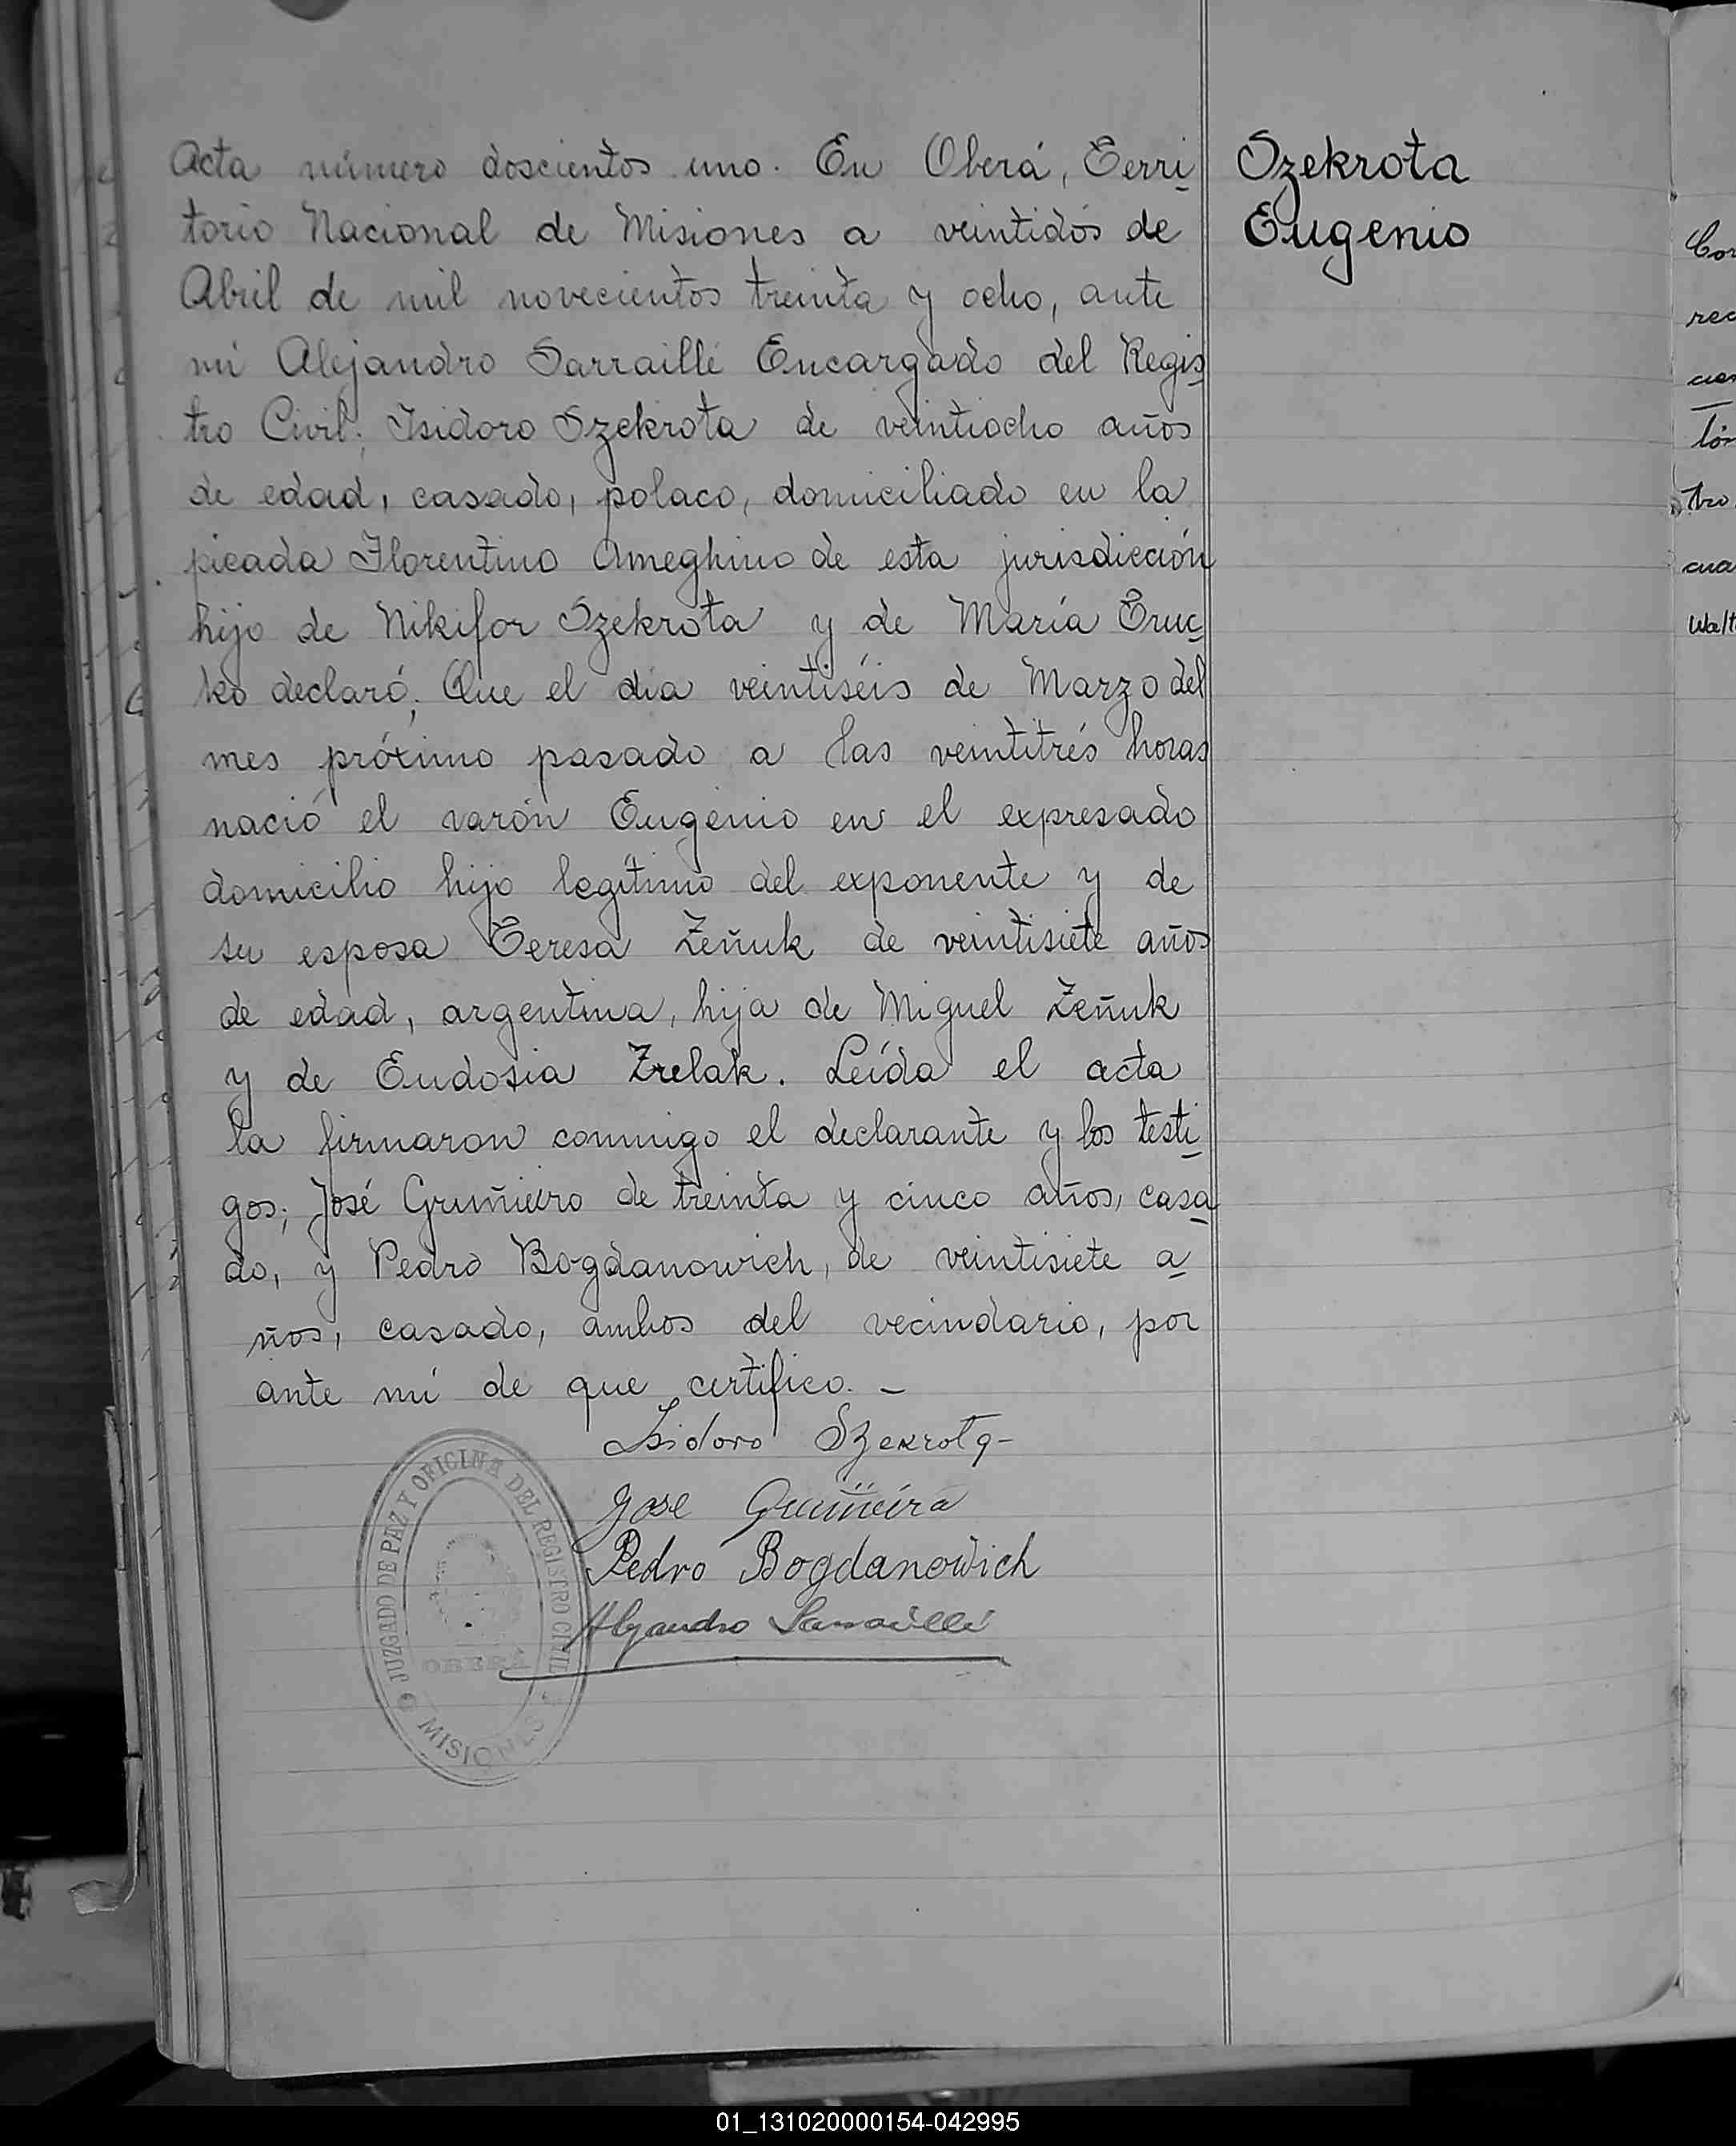 Acta número doscientos uno. En Oberá, Terri
torio Nacional de Misiones a veintidós de
Abril de mil novecientos treinta y ocho, ante
mí Alejandro Sarraillé Encargado del Regis
tro Civil; Isidoro Szekrota de veintiocho años
de edad, casado, polaco, domiciliado en la
picada Florentino Ameghino de esta jurisdicción
hijo de Nikifor Szekrota y de María Truc
ko declaró; Que el día veintiséis de Marzo del
mes próximo pasado a las veintitrés horas
nació el varón Eugenio en el expresado
domicilio hijo legítimo del exponente y de
su esposa Teresa Zeñuk de veintisiete años
de edad, argentina, hija de Miguel Zeñuk
y de Eudosia Zrelak. Leída el acta
la firmaron conmigo el declarante y los testi
gos; José Gruñieiro de treinta y cinco años, casa
do, y Pedro Bogdanowich, de veintisiete a
ños, casado, ambos del vecindario, por
ante mí de que certifico. –
Isidoro Szekrota–
Jose
Pedro Bogdanowich
Alejandro Sarraillé
JUZGADO DE PAZ Y OFICINA DEL REGISTRO CIVIL
OBERÁ
MISIONES
Szekrota
Eugenio
01_131020000154-042995